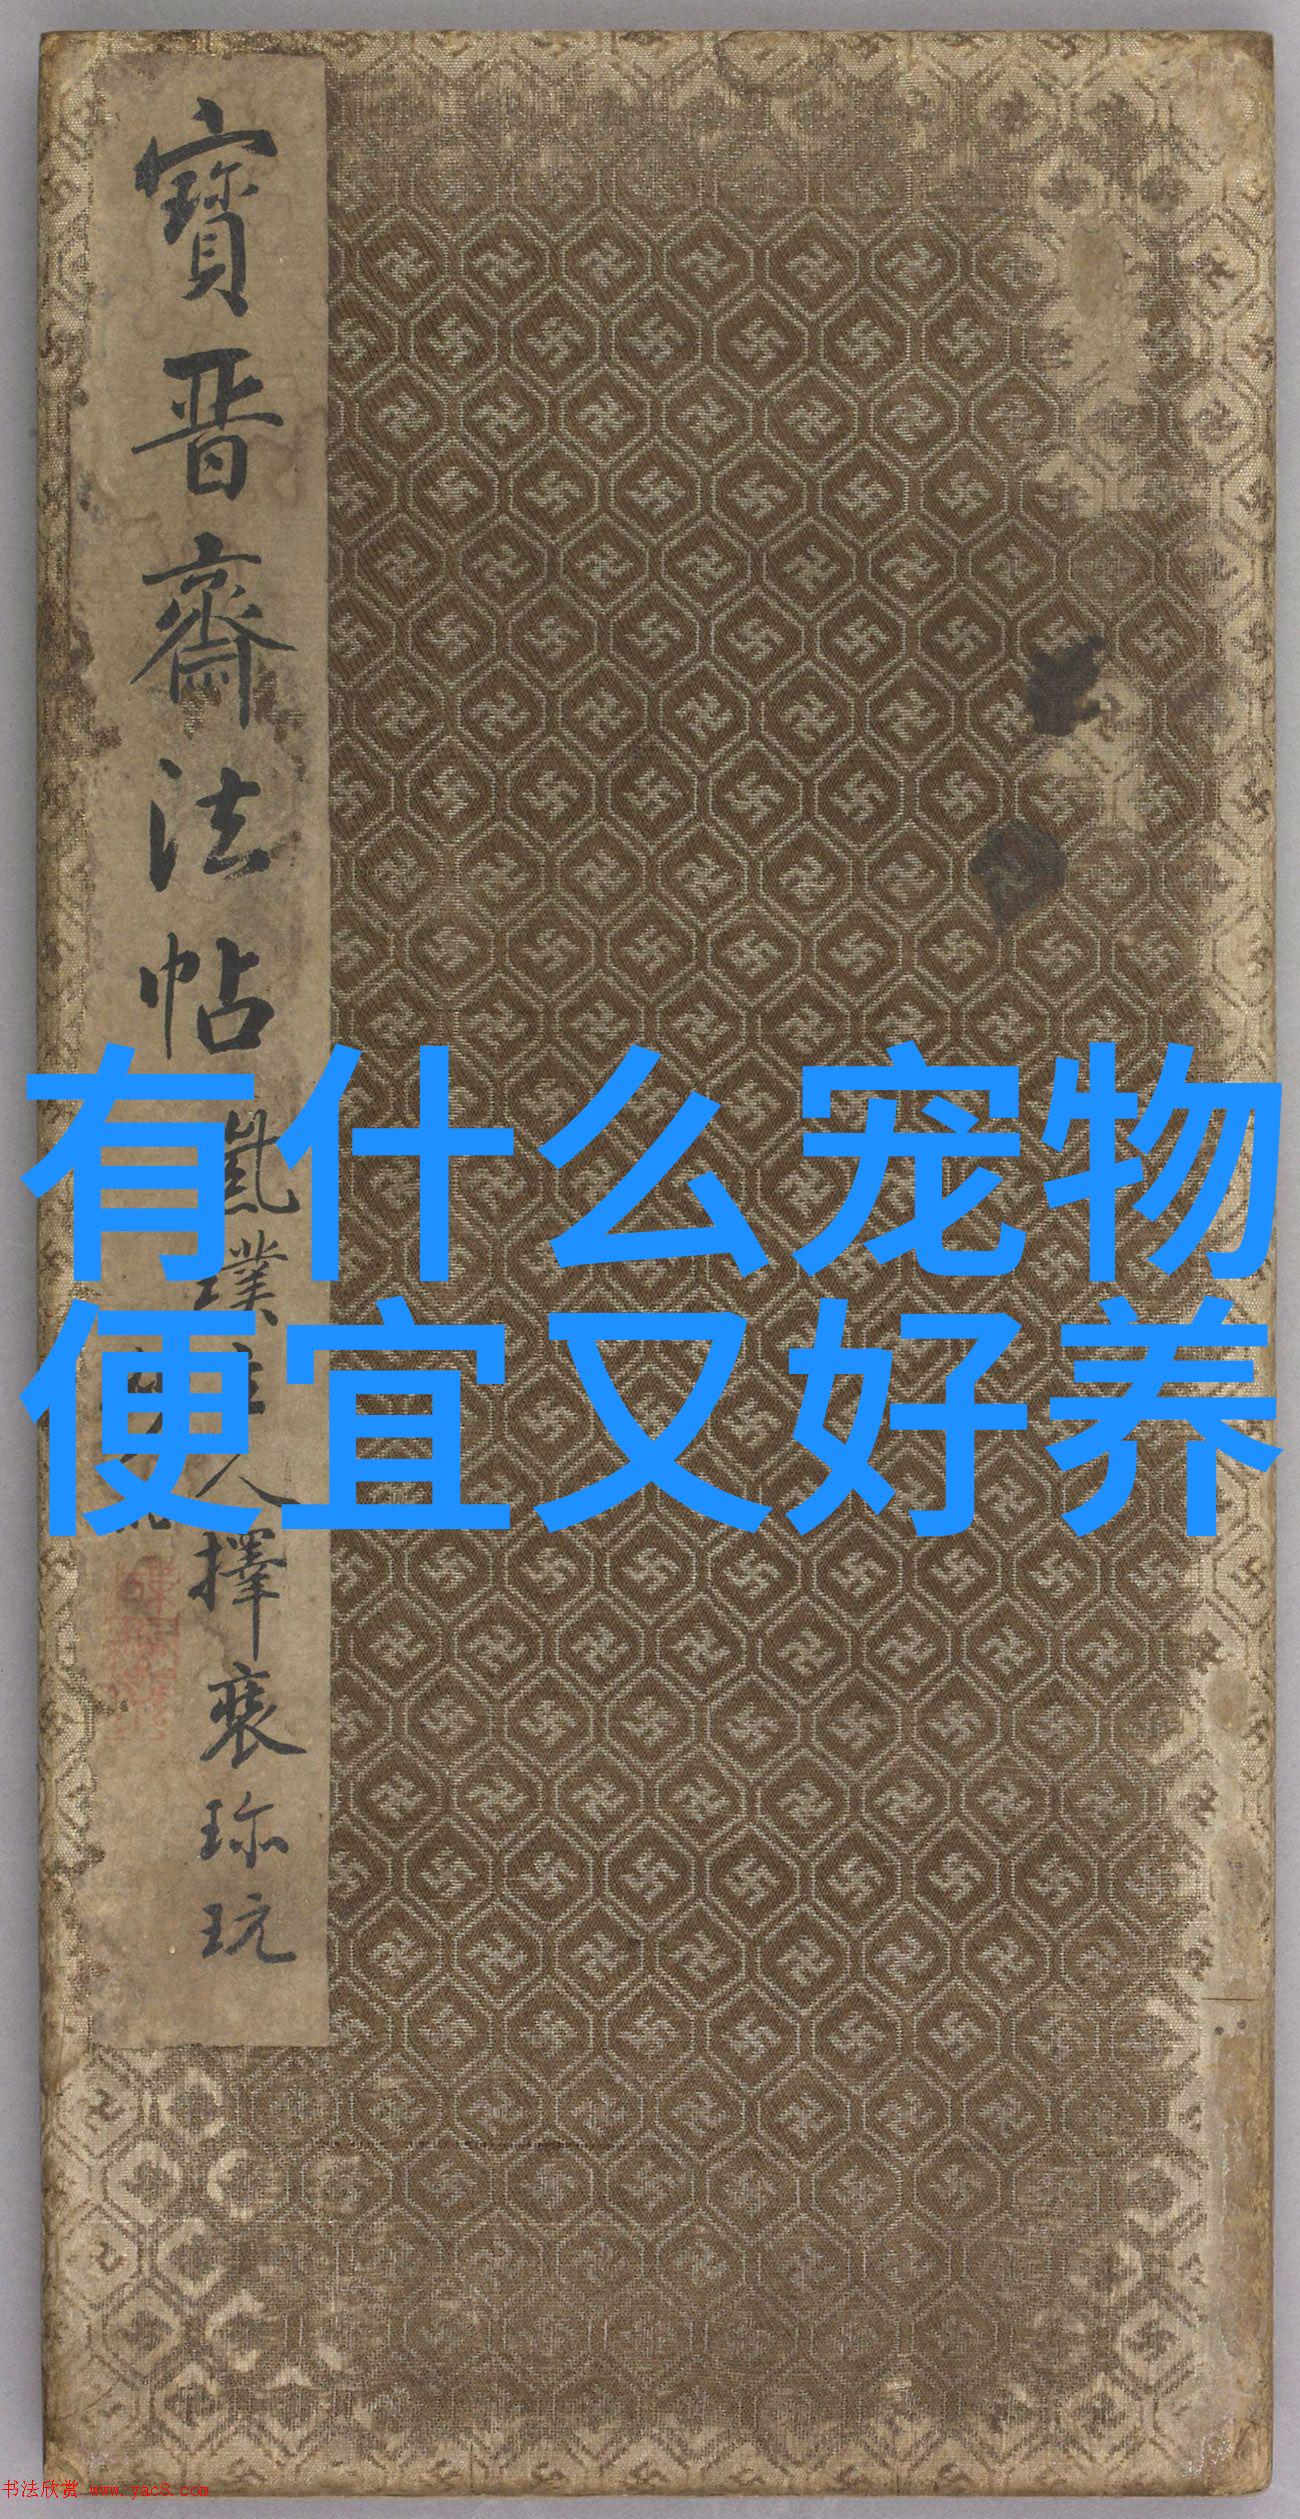 寶晉齋法帖
擇裒珎玩
有什么宠物
便宜又好养
书法欣赏 www.yac8.com